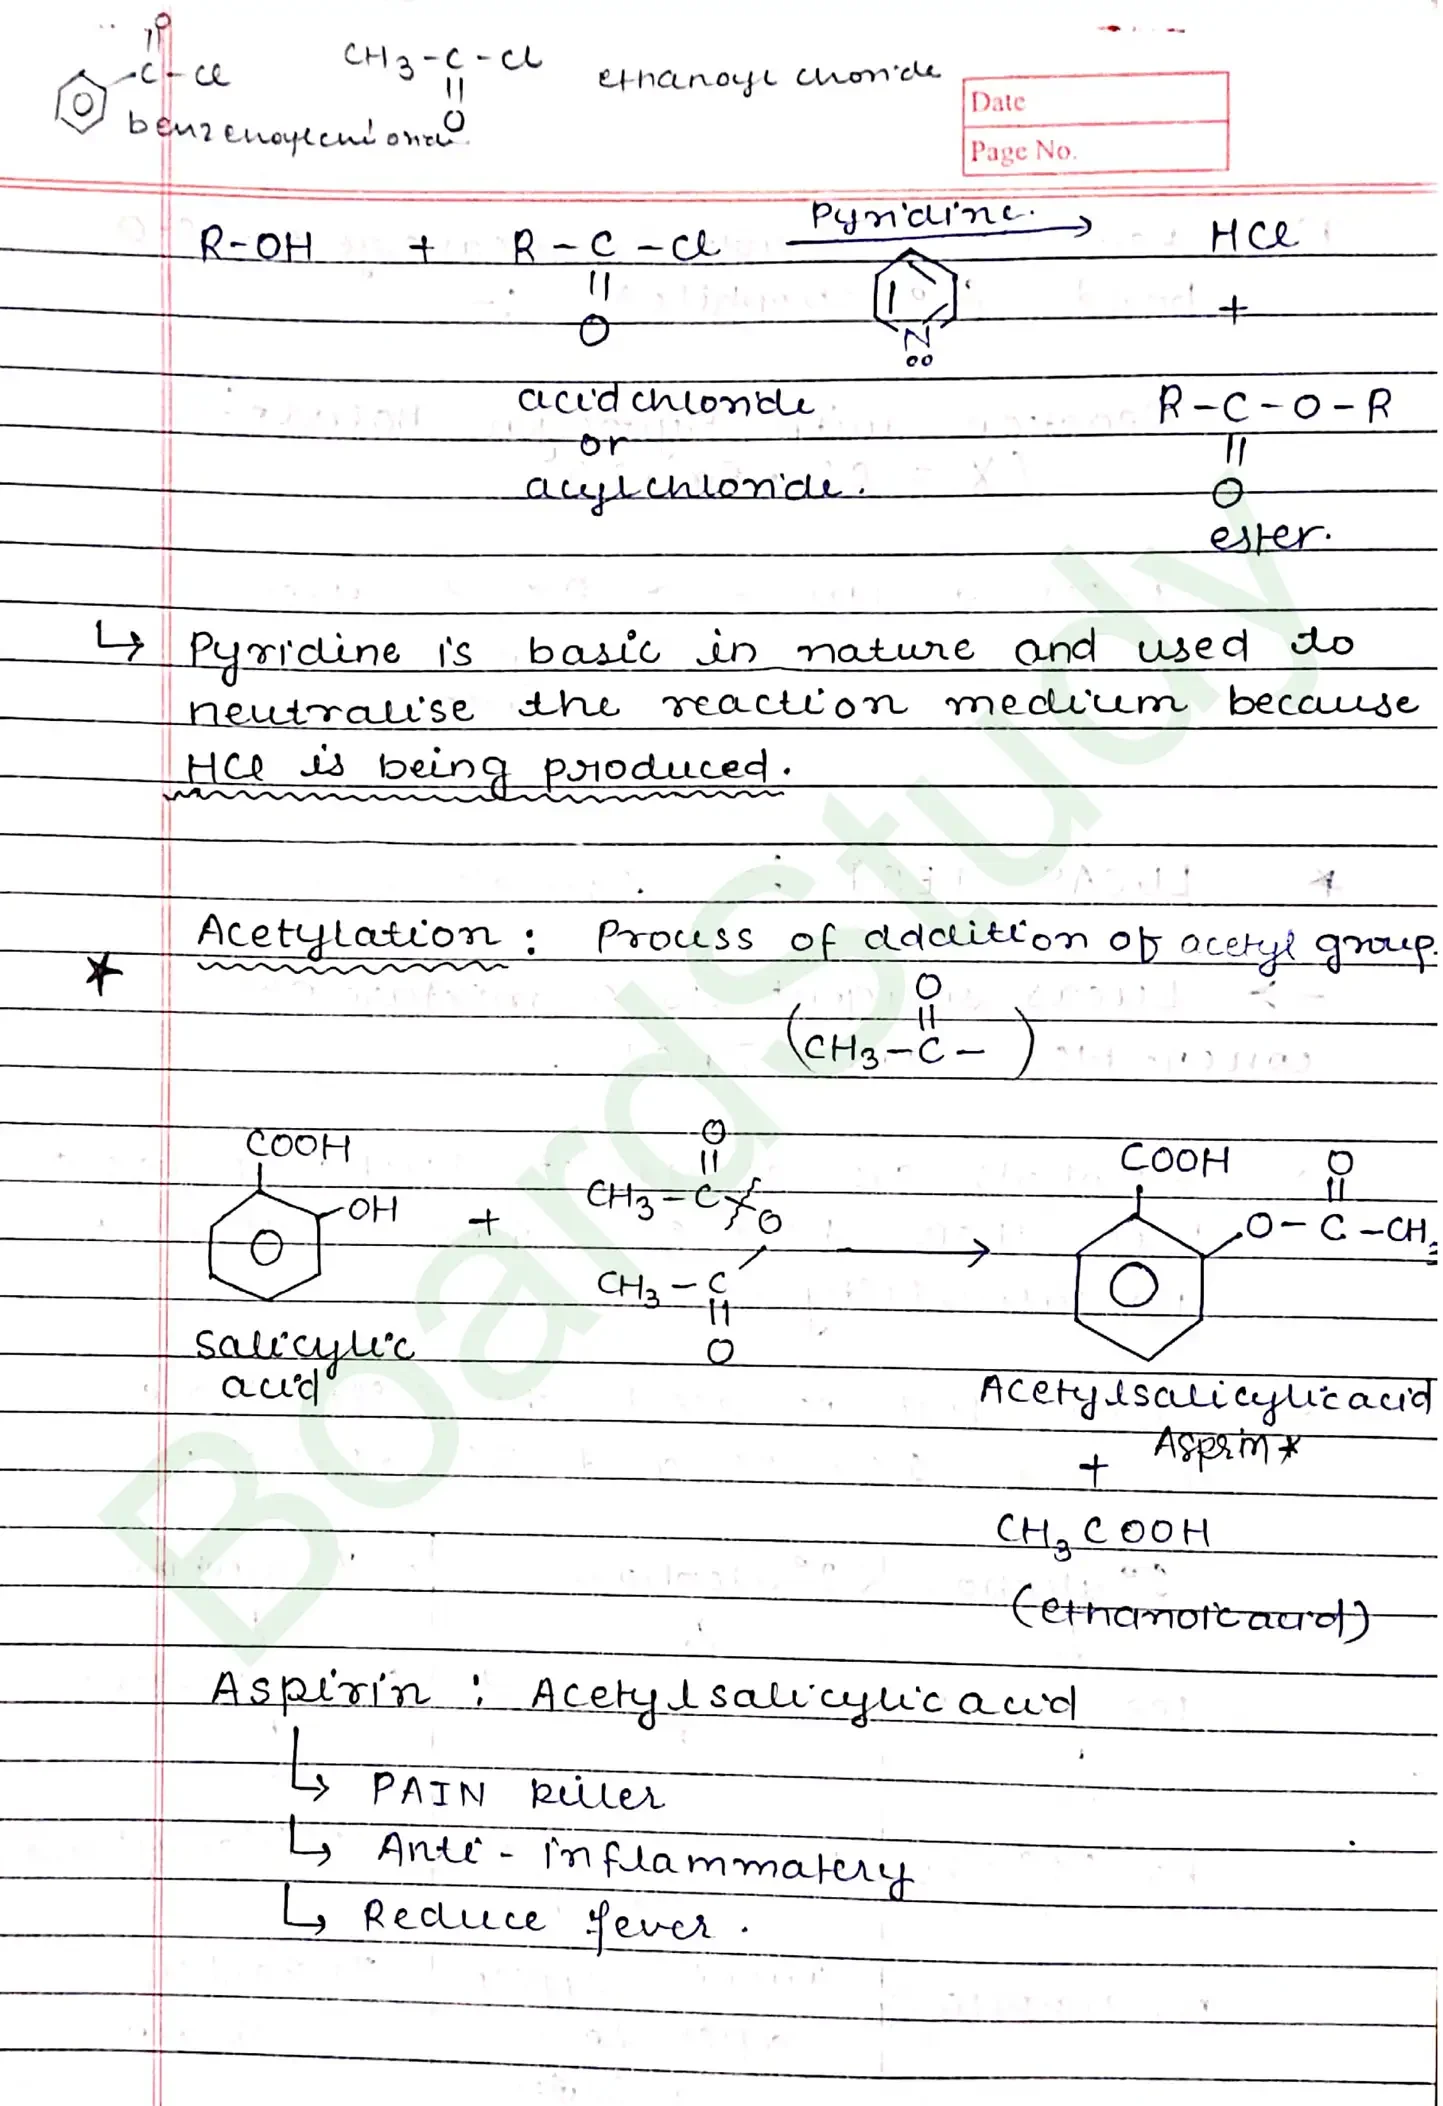 O
||
-C-Cl
benzenoylchloride
CH3-C-Cl
||
O
ethanoyl chloride
Date
Page No.
R-OH + R-C-Cl Pyridine. → HCl
||
O
N
+
acid chloride
or
acylchloride.
R-C-O-R
||
O
ester.
↳ Pyridine is basic in nature and used to
neutralise the reaction medium because
HCl is being produced.
* Acetylation : Process of addition of acetyl group.
O
||
(CH3-C- )
COOH
-OH
+
O
||
CH3-C
O
CH3-C
||
O
→
COOH
O
||
O-C-CH3
Salicylic
acid
Acetylsalicylic acid
Asprin*
+
CH3COOH
(ethanoic acid)
Aspirin : Acetylsalicylic acid
↳ PAIN killer
↳ Anti-inflammatery
↳ Reduce fever.
BoardStudy